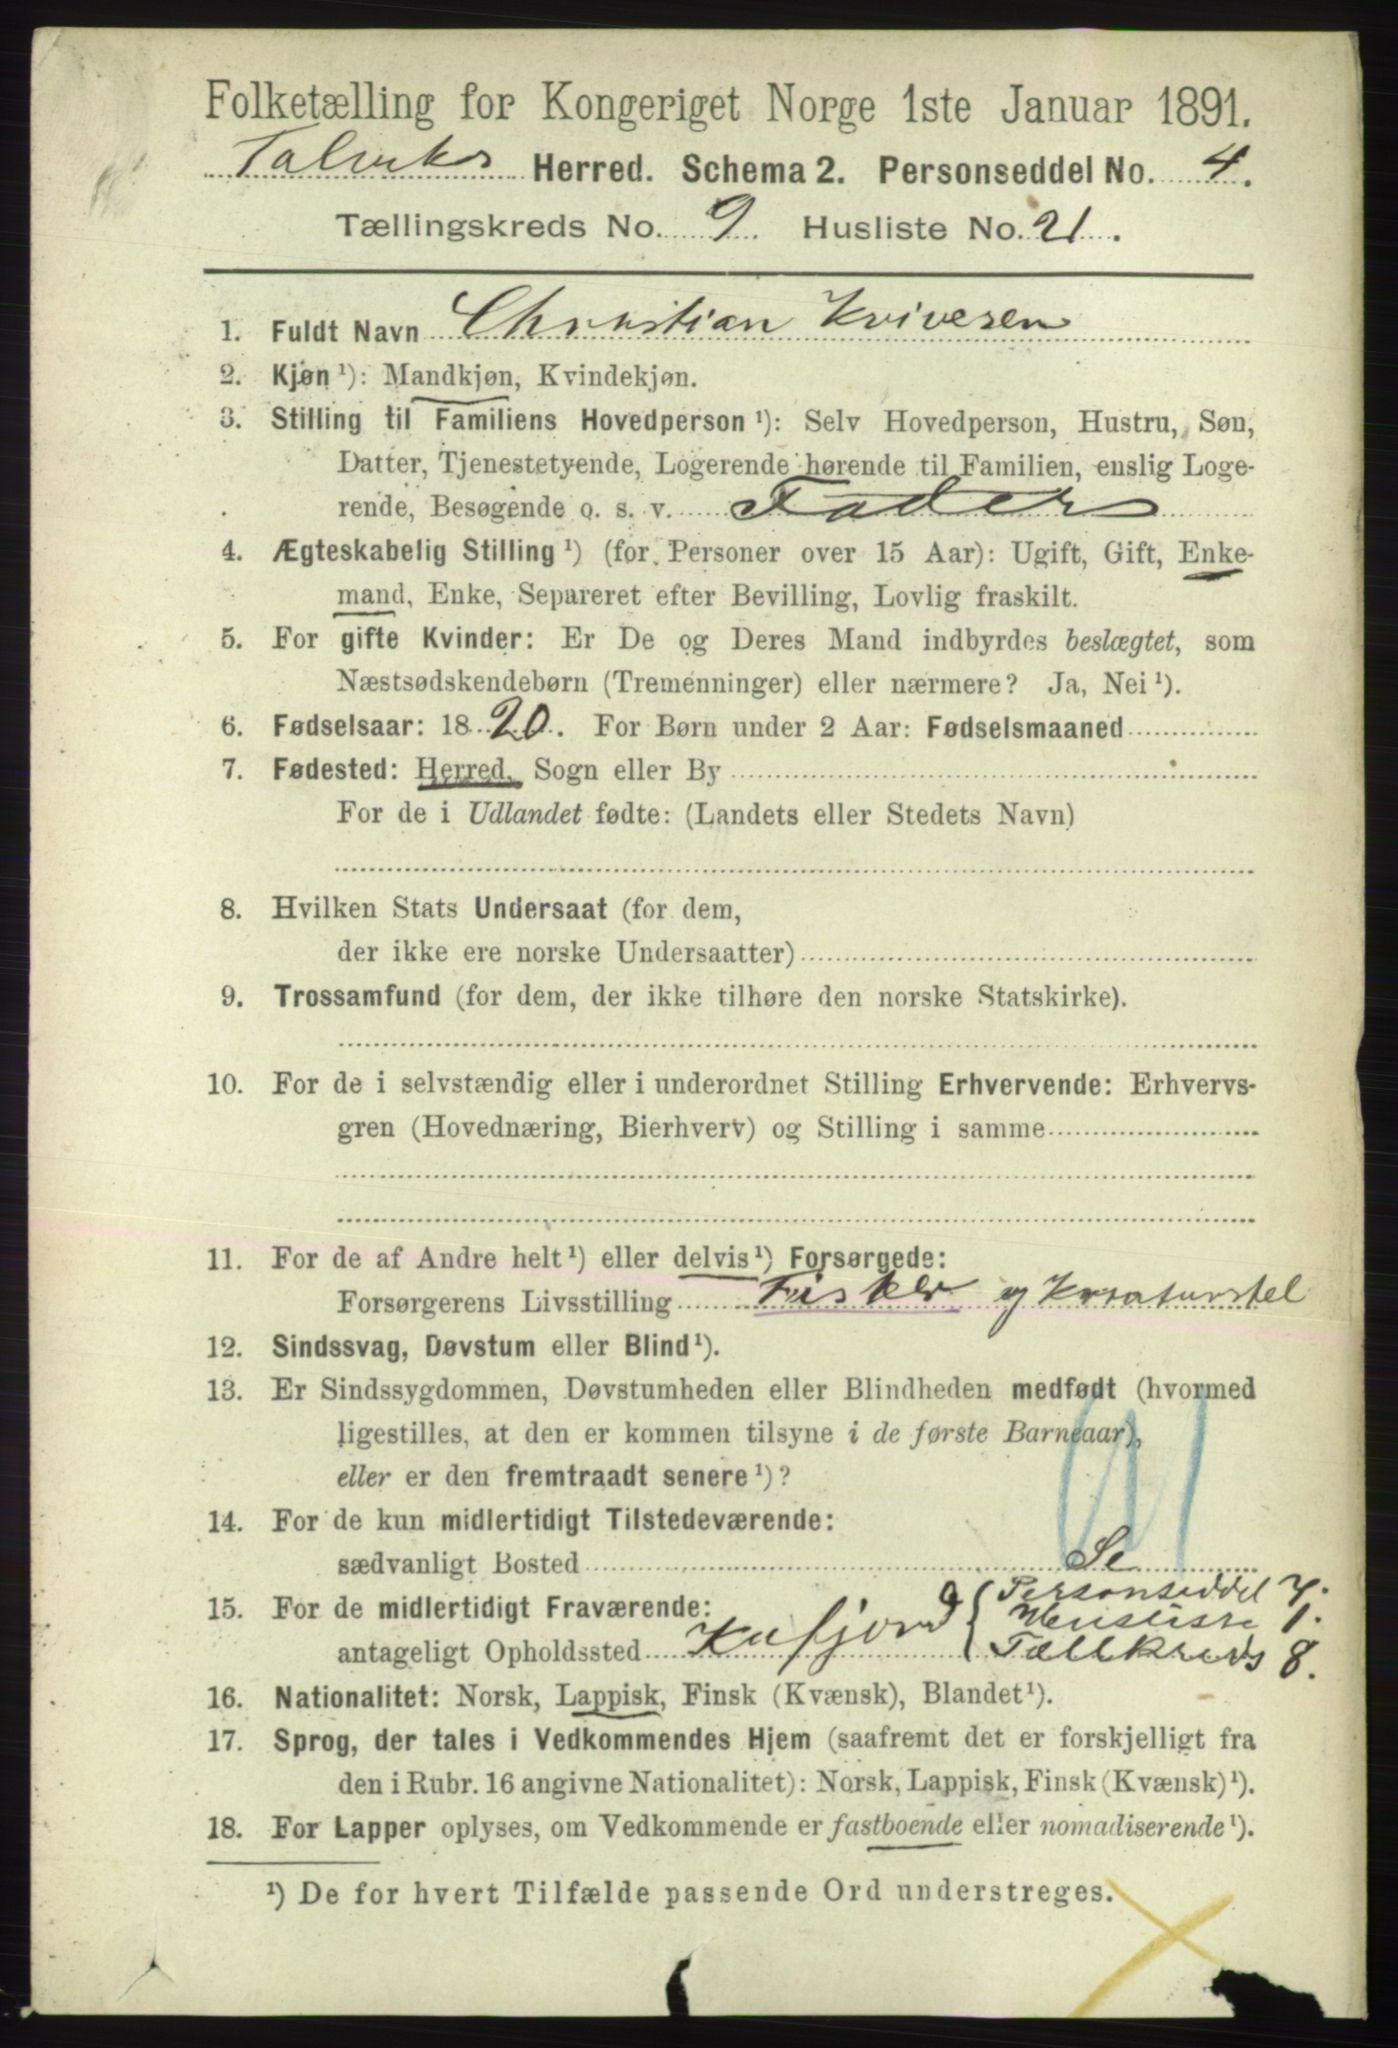 Folketælling for Kongeriget Norge 1ste Januar 1891.
Talviks Herred. Schema 2. Personseddel No. 4.
Tællingskreds No. 9 Husliste No. 21.
1. Fuldt Navn Christian Kvivesen
2. Kjøn ¹): Mandkjøn, Kvindekjøn.
3. Stilling til Familiens Hovedperson ¹): Selv Hovedperson, Hustru, Søn,
Datter, Tjenestetyende, Logerende hørende til Familien, enslig Loge-
rende, Besøgende o. s. v. Fader
4. Ægteskabelig Stilling ¹) (for Personer over 15 Aar): Ugift, Gift, Enke-
mand, Enke, Separeret efter Bevilling, Lovlig fraskilt.
5. For gifte Kvinder: Er De og Deres Mand indbyrdes beslægtet, som
Næstsødskendebørn (Tremenninger) eller nærmere? Ja, Nei ¹).
6. Fødselsaar: 1820. For Børn under 2 Aar: Fødselsmaaned
7. Fødested: Herred, Sogn eller By
For de i Udlandet fødte: (Landets eller Stedets Navn)
8. Hvilken Stats Undersaat (for dem,
der ikke ere norske Undersaatter)
9. Trossamfund (for dem, der ikke tilhøre den norske Statskirke).
10. For de i selvstændig eller i underordnet Stilling Erhvervende: Erhvervs-
gren (Hovednæring, Bierhverv) og Stilling i samme
11. For de af Andre helt ¹) eller delvis ¹) Forsørgede:
Forsørgerens Livsstilling Fisker og Kreaturstel
12. Sindssvag, Døvstum eller Blind ¹).
13. Er Sindssygdommen, Døvstumheden eller Blindheden medfødt (hvormed
ligestilles, at den er kommen tilsyne i de første Barneaar),
eller er den fremtraadt senere ¹)?
14. For de kun midlertidigt Tilstedeværende:
sædvanligt Bosted Se
15. For de midlertidigt Fraværende: Personseddel 7.
Husliste 1.
antageligt Opholdssted Kafjord Tællkreds 8.
16. Nationalitet: Norsk, Lappisk, Finsk (Kvænsk), Blandet ¹).
17. Sprog, der tales i Vedkommendes Hjem (saafremt det er forskjelligt fra
den i Rubr. 16 angivne Nationalitet): Norsk, Lappisk, Finsk (Kvænsk) ¹).
18. For Lapper oplyses, om Vedkommende er fastboende eller nomadiserende ¹).
¹) De for hvert Tilfælde passende Ord understreges.